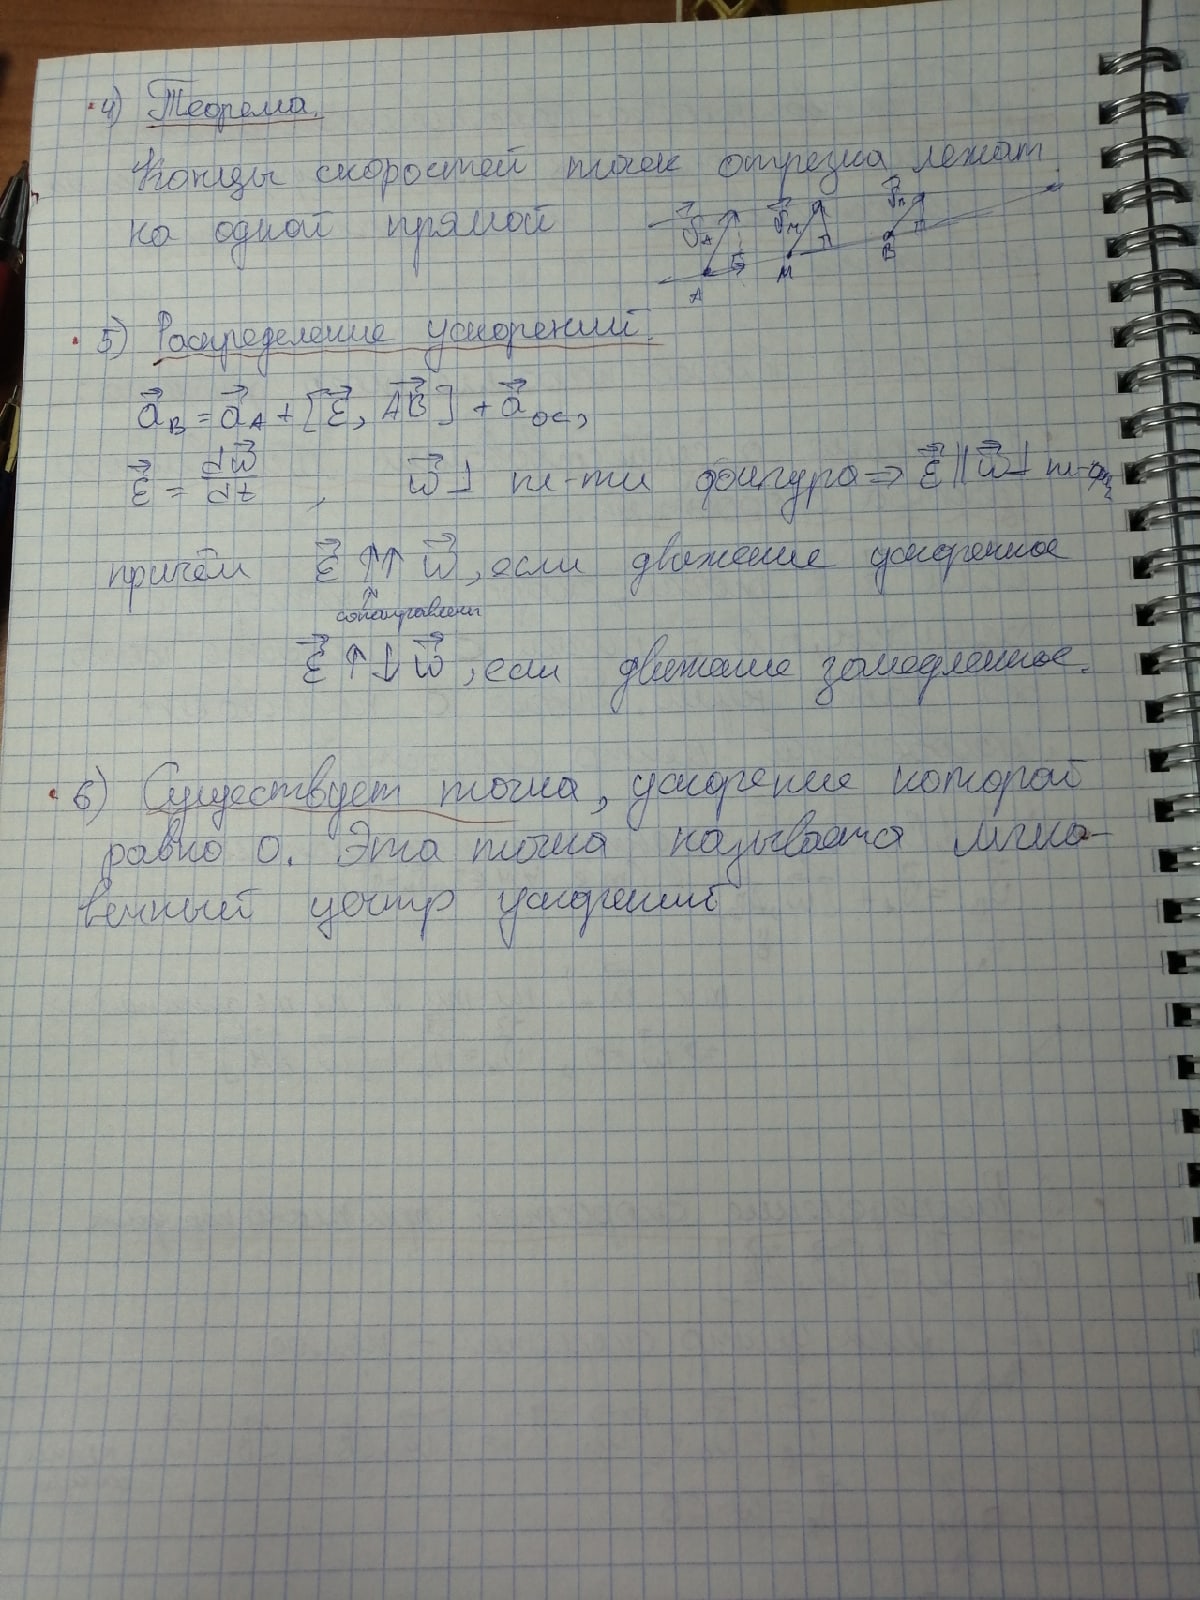 4) Теорема.
Концы скоростей точек отрезка лежат
на одной прямой
V⃗A V⃗M V⃗B
A M B
5) Распределение ускорений.
a⃗B = a⃗A + [ε⃗, AB⃗] + a⃗ос,
ε⃗ = dw⃗/dt , w⃗ ⊥ пл-ти фигура ⇒ ε⃗ || w⃗ ⊥ пл-
причём ε⃗ ↑↑ w⃗, если движение ускоренное
сонаправлены
ε⃗ ↑↓ w⃗, если движение замедленное.
6) Существует точка, ускорение которой
равно 0. Эта точка называется мгно-
венный центр ускорений